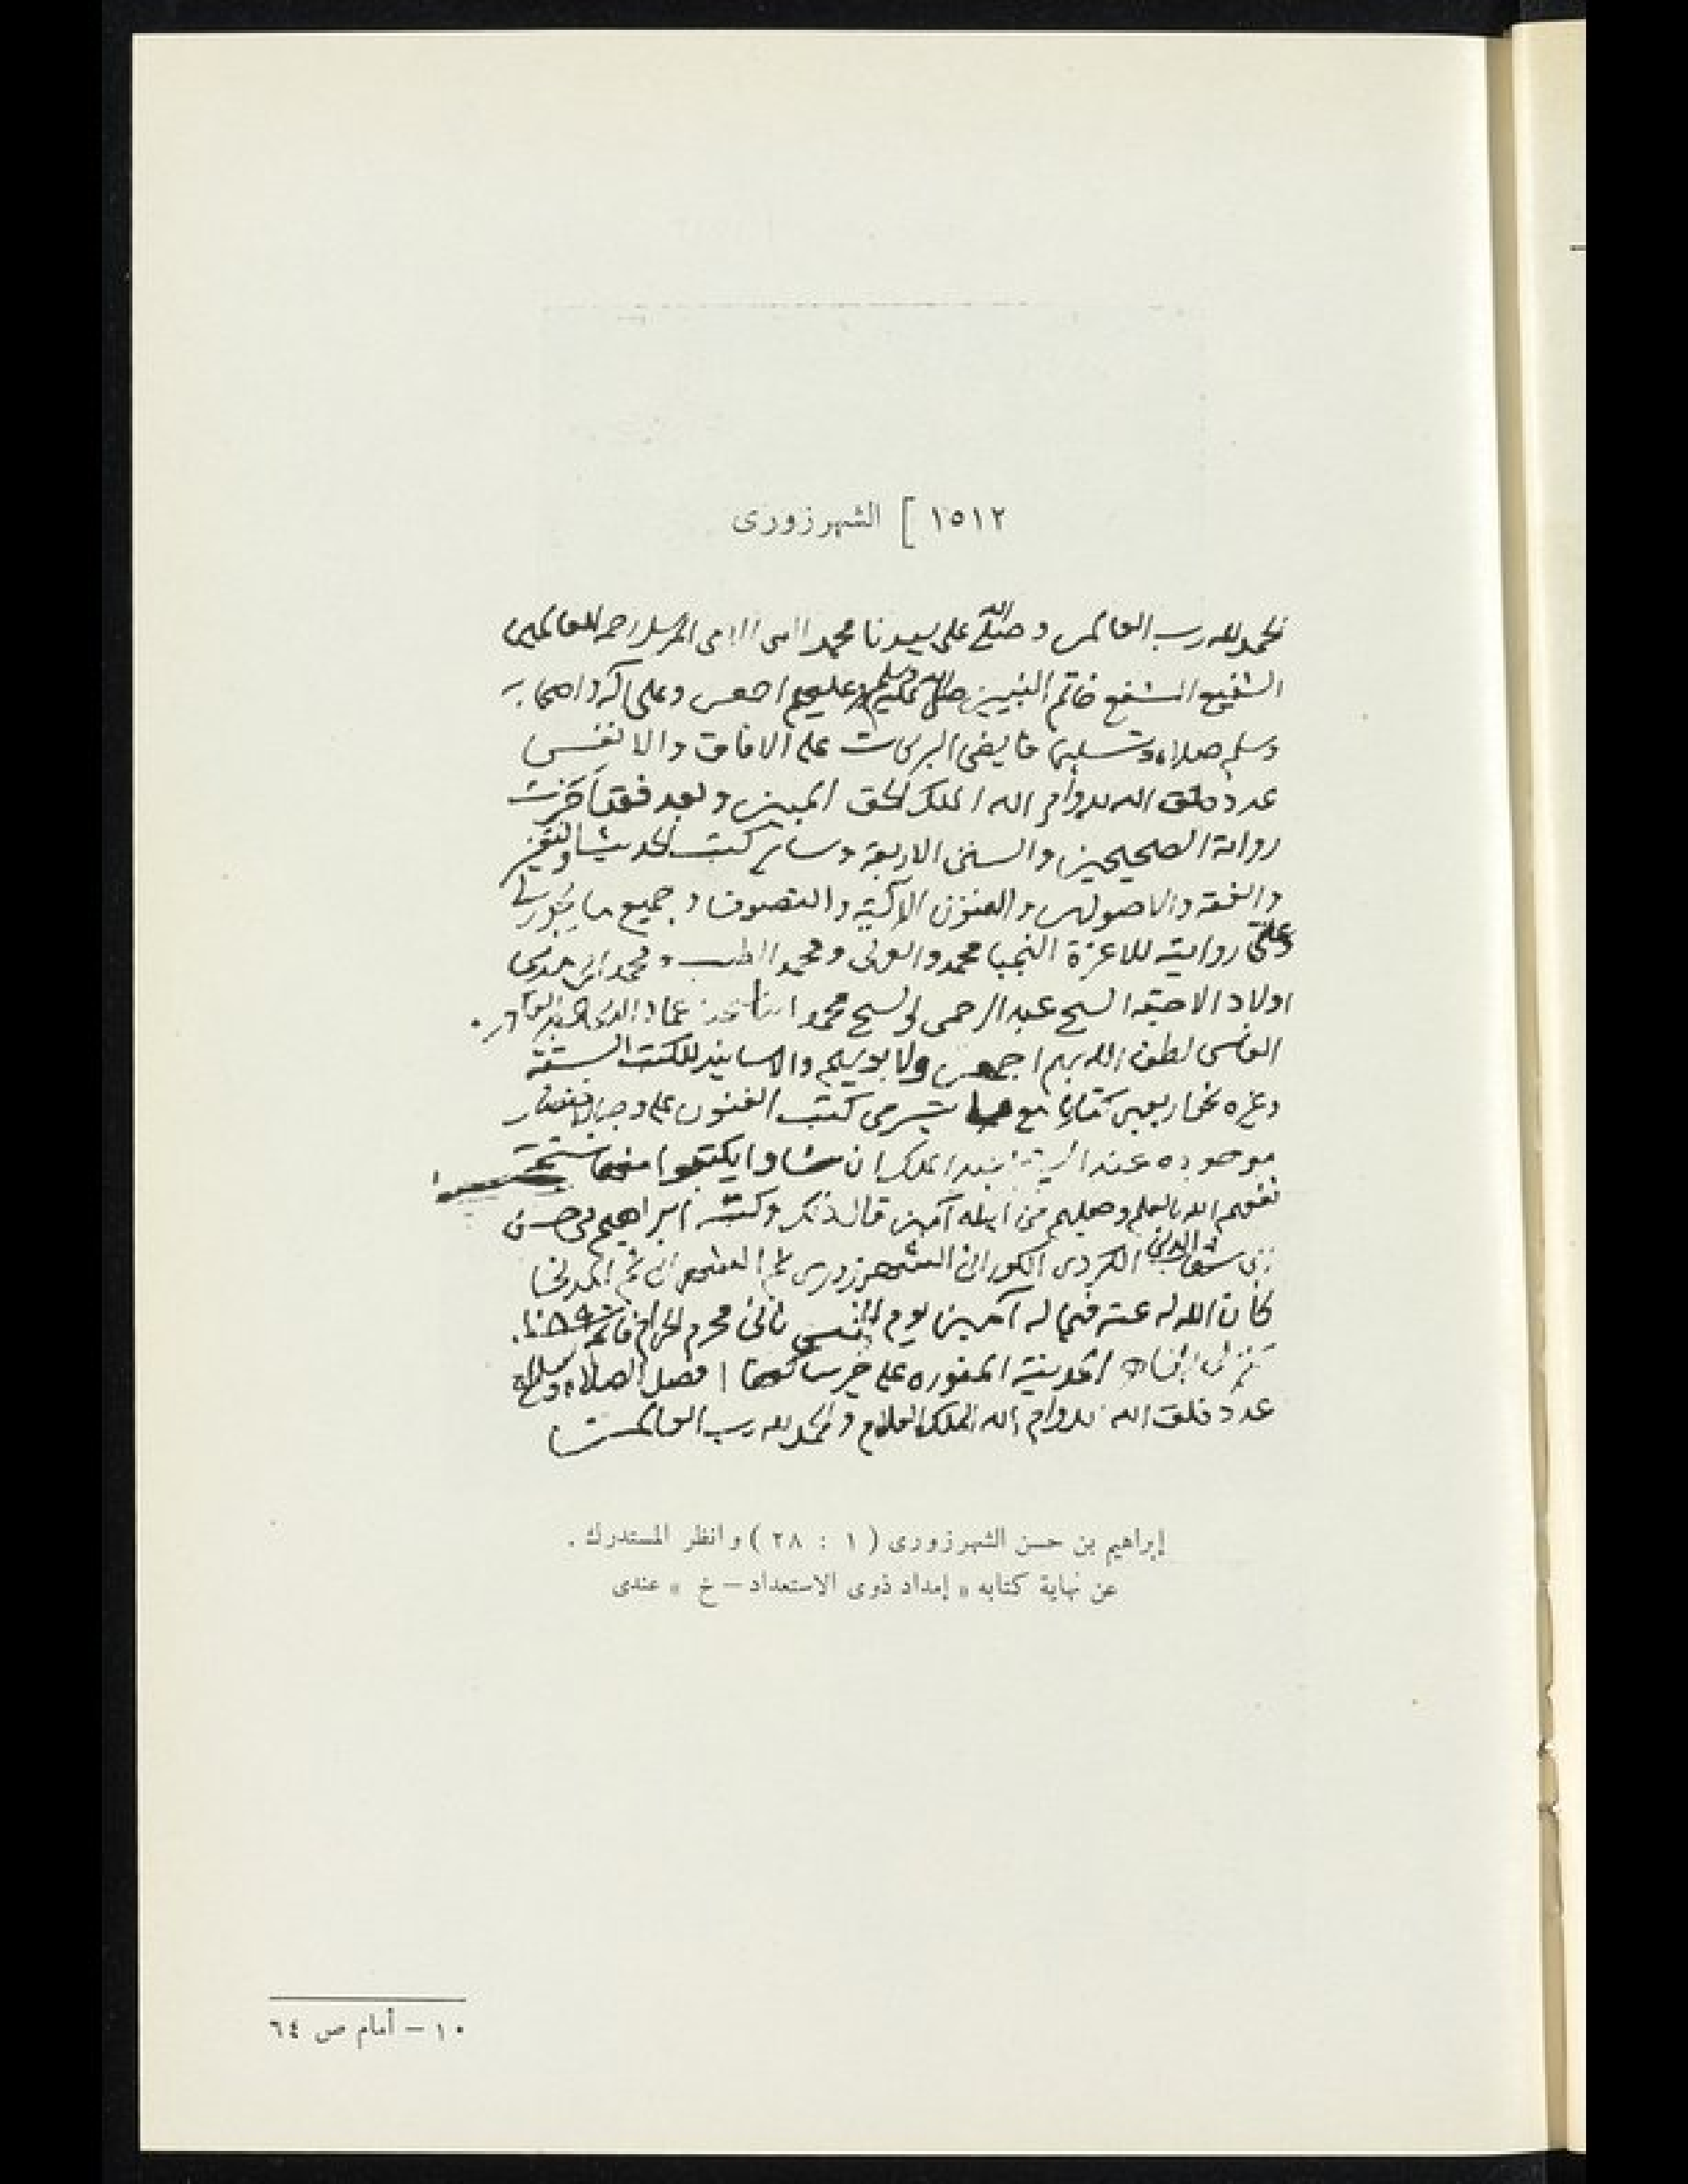 ١٥١٢ ] الشهرزورى
الحمد لله رب العالمين وصلى الله على سيدنا محمد النبي الامي المرسل رحمة للعالمين
الشفيع المشفع خاتم النبيين صلى الله وسلم عليه وعليهم اجمعين وعلى آله واصحابه
وسلم صلاة وتسليما فايضي البركات على الافاق والانفس
عدد خلق الله بدوام الله الملك الحق المبين وبعد فقد اجزت
رواية الصحيحين والسنن الاربعة وسائر كتب الحديث والتفسير
والفقه والاصولين والفنون الآلية والتصوف وجميع ما يجوز لي
وعني روايته للاعزة النجبا محمد و محمد الطيب و محمد
اولاد الاحبة الشيخ عبد الرحمن والشيخ محمد ابنا
الفاسي لطف الله بهم اجمعين ولابويهم والاسانيد للكتب الستة
وغيره نحو اربعين كتابا مع كتب الفنون على وجه
موجوده عند ان شاوا يكتبوا منها نسخة
نفعهم الله بالعلم وجعلهم من اهله آمين قال ذلك وكتبه ابراهيم بن حسن
بن شهاب الدين الكردي الكوراني الشهرزوري ثم الشهراني ثم المدني
كان الله له عنه فيما له آمين يوم ثاني محرم الحرام
المدينة المنوره على خير ساكنها افضل الصلاة والسلام
عدد خلق الله بدوام الله الملك العلام والحمد لله رب العالمين
إبراهيم بن حسن الشهرزورى ( ١ : ٢٨ ) وانظر المستدرك .
عن نهاية كتابه « إمداد ذوى الاستعداد – خ » عندى
١٠ – أمام ص ٦٤